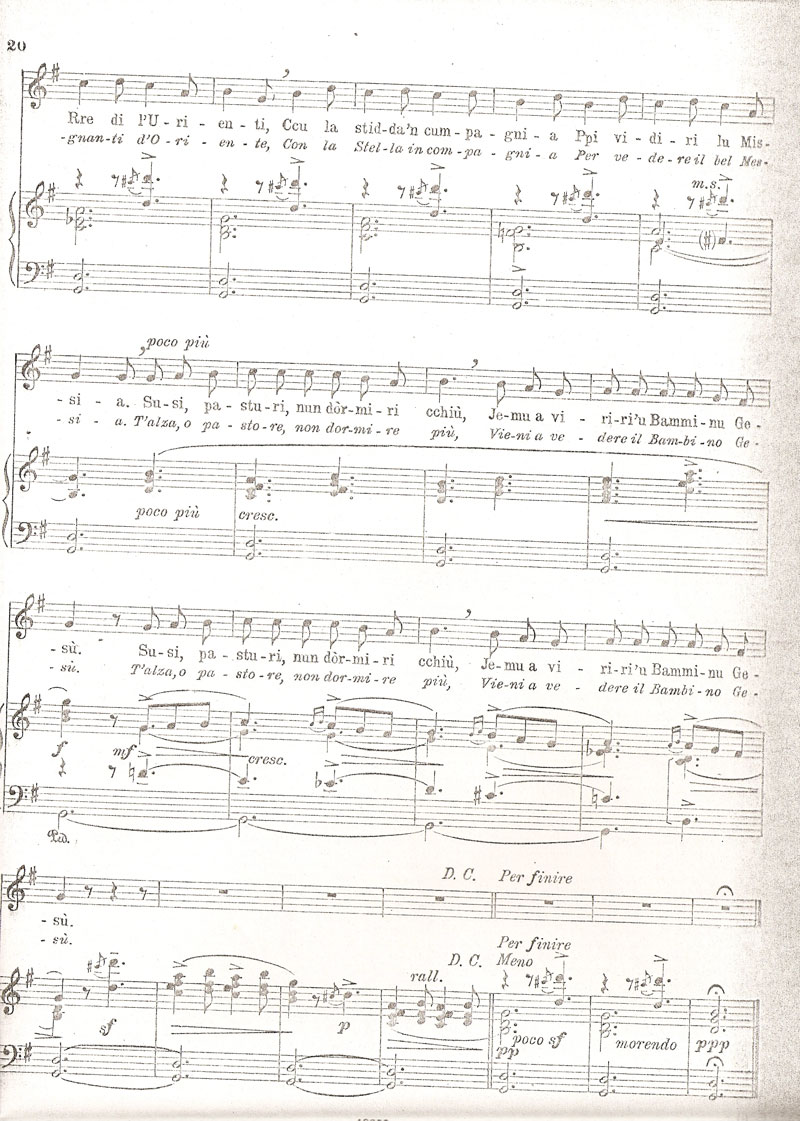 20
Rre di l'U - ri - en - ti, Ccu la stid-da'n cum - pa - gni - a Ppi vi - di - ri lu Mis-
-gnan-ti d'O - ri - en - te, Con la Stel-la in com - pa - gni - a Per ve - de-re il bel Mes-
m.s.
poco più
- si - a. Su-si, pa - stu-ri, nun dòr-mi-ri cchiù, Je-mu a vi - ri-ri'u Bammi-nu Ge -
- si - a. T'alza, o pa - sto-re, non dor-mi-re più, Vie-ni a ve - dere il Bam-bi-no Ge -
poco più cresc.
- sù. Su-si, pa - stu-ri, nun dòr-mi-ri cchiù, Je-mu a vi - ri-ri'u Bammi-nu Ge -
- sù. T'alza, o pa - sto-re, non dor-mi-re più, Vie-ni a ve - dere il Bambi-no Ge -
f mf cresc.
Ped.
D. C. Per finire
- sù.
- sù.
Per finire
D. C. Meno
rall.
sf p poco sf morendo ppp
pp